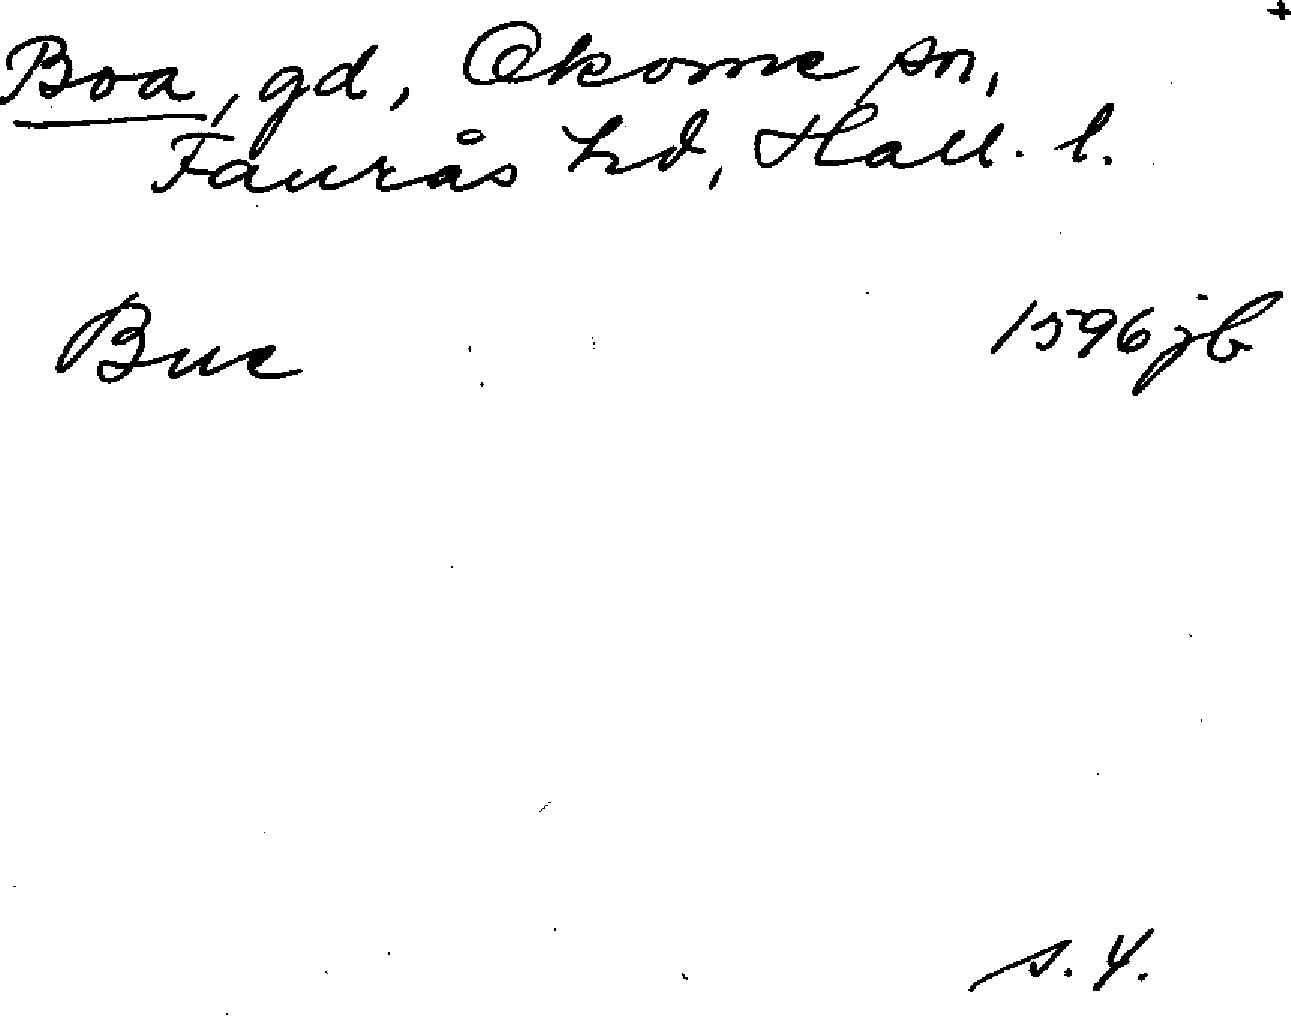 +
Boa, gd, Okome sn,
Faurås hd, Hall. l.
Bue 1596 jb
s. 4.